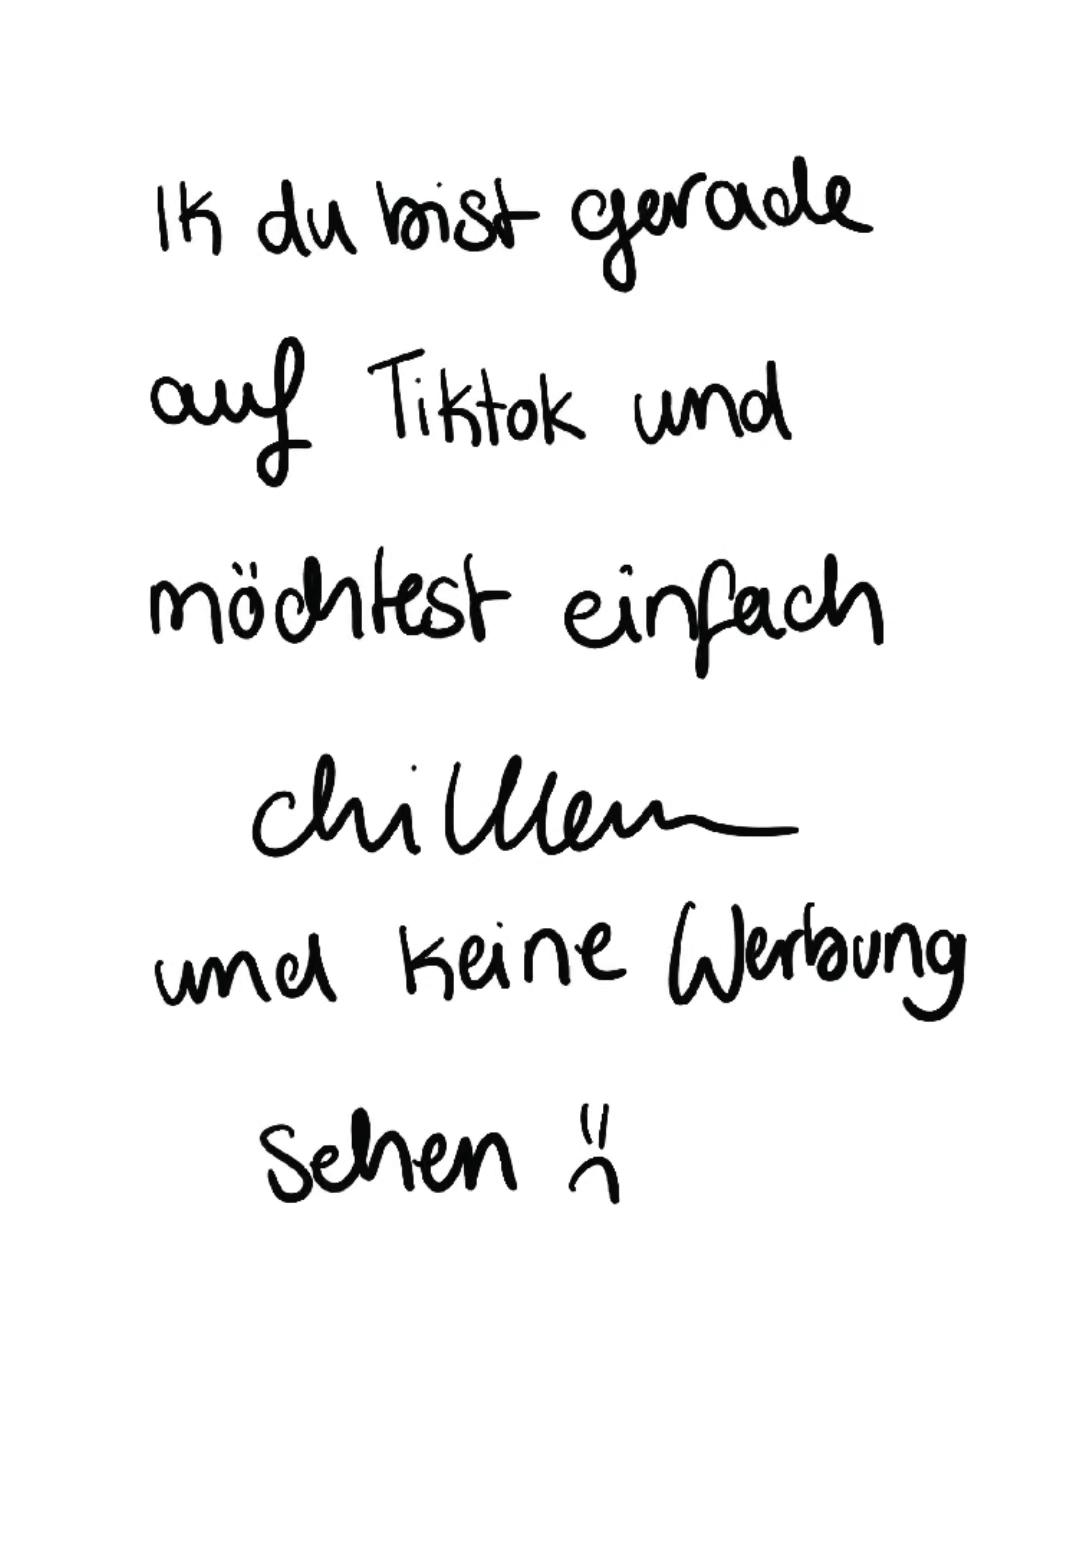 Ik du bist gerade
auf Tiktok und
möchtest einfach
chillen
und keine Werbung
sehen :(